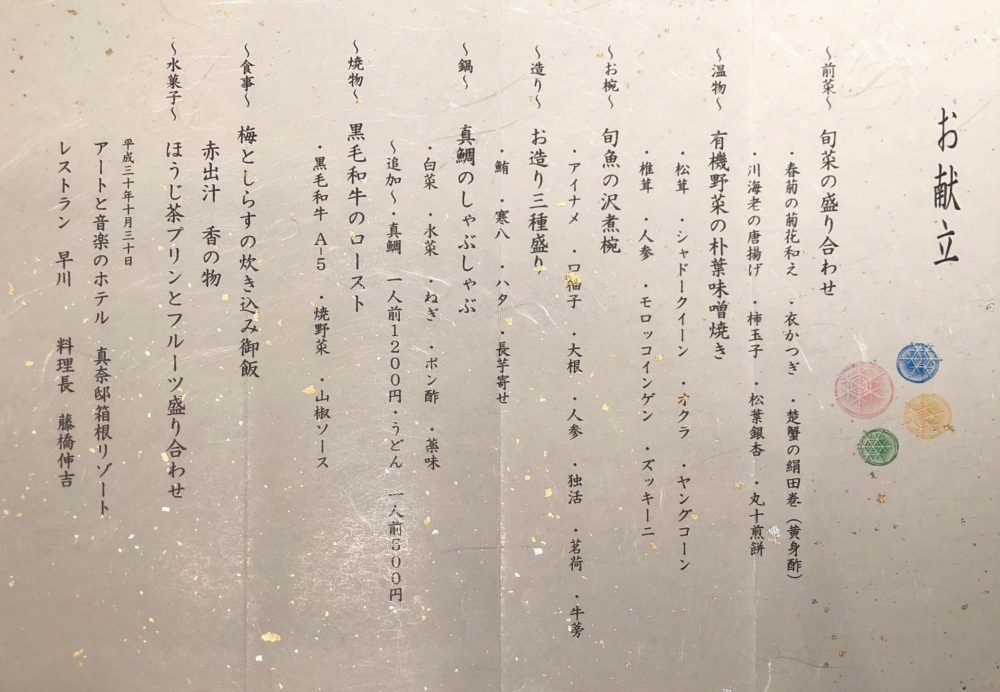 お献立
～前菜～　旬菜の盛り合わせ
・春菊の菊花和え　・衣かつぎ　・楚蟹の絹田巻（黄身酢）
・川海老の唐揚げ　・柿玉子　・松葉銀杏　・丸十煎餅
～温物～　有機野菜の朴葉味噌焼き
・松茸　・シャドークイーン　・オクラ　・ヤングコーン
・椎茸　・人参　・モロッコインゲン　・ズッキーニ
～お椀～　旬魚の沢煮椀
・アイナメ　・口柚子　・大根　・人参　・独活　・茗荷　・牛蒡
～造り～　お造り三種盛り
・鮪　・寒八　・ハタ　・長芋寄せ
～鍋～　真鯛のしゃぶしゃぶ
・白菜　・水菜　・ねぎ　・ポン酢　・薬味
～追加～・真鯛　一人前１２００円・うどん　一人前５００円
～焼物～　黒毛和牛のロースト
・黒毛和牛　A-5　・焼野菜　・山椒ソース
～食事～　梅としらすの炊き込み御飯
赤出汁　香の物
～水菓子～　ほうじ茶プリンとフルーツ盛り合わせ
平成三十年十月三十日
アートと音楽のホテル　真奈邸箱根リゾート
レストラン　早川　料理長　藤橋伸吉